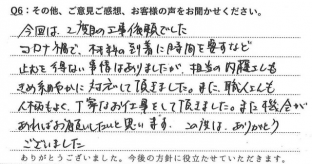 Q6：その他、ご意見ご感想、お客様の声をお聞かせください。
今回は、2度目の工事依頼でした
コロナ禍で、材料の到着に時間を要すなど
止むを得ない事情はありましたが、担当の内種さんも
きめ細やかに対応して頂きました。また、職人さんも
人柄もよく、丁寧なお仕事をして頂きました。また機会が
あればお願いしたいと思います。この度は、ありがとう
ございました
ありがとうございました。今後の方針に役立たせていただきます。